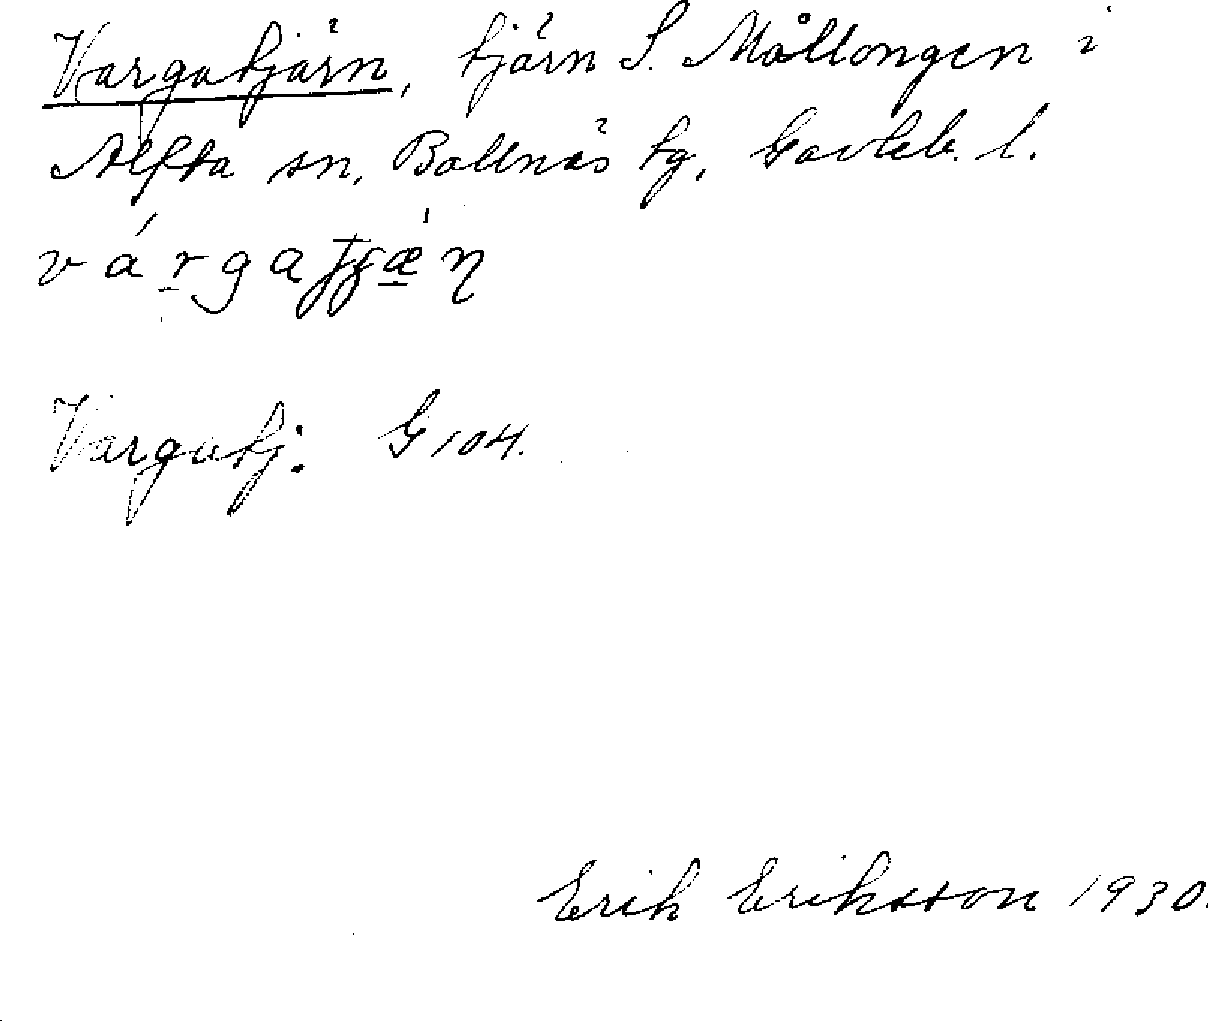 Vargatjärn, tjärn S. Mållongen i
Alfta sn, Bollnäs tg, Gävleb. l.
Vargatj. G 104.
Erik Eriksson 1930.